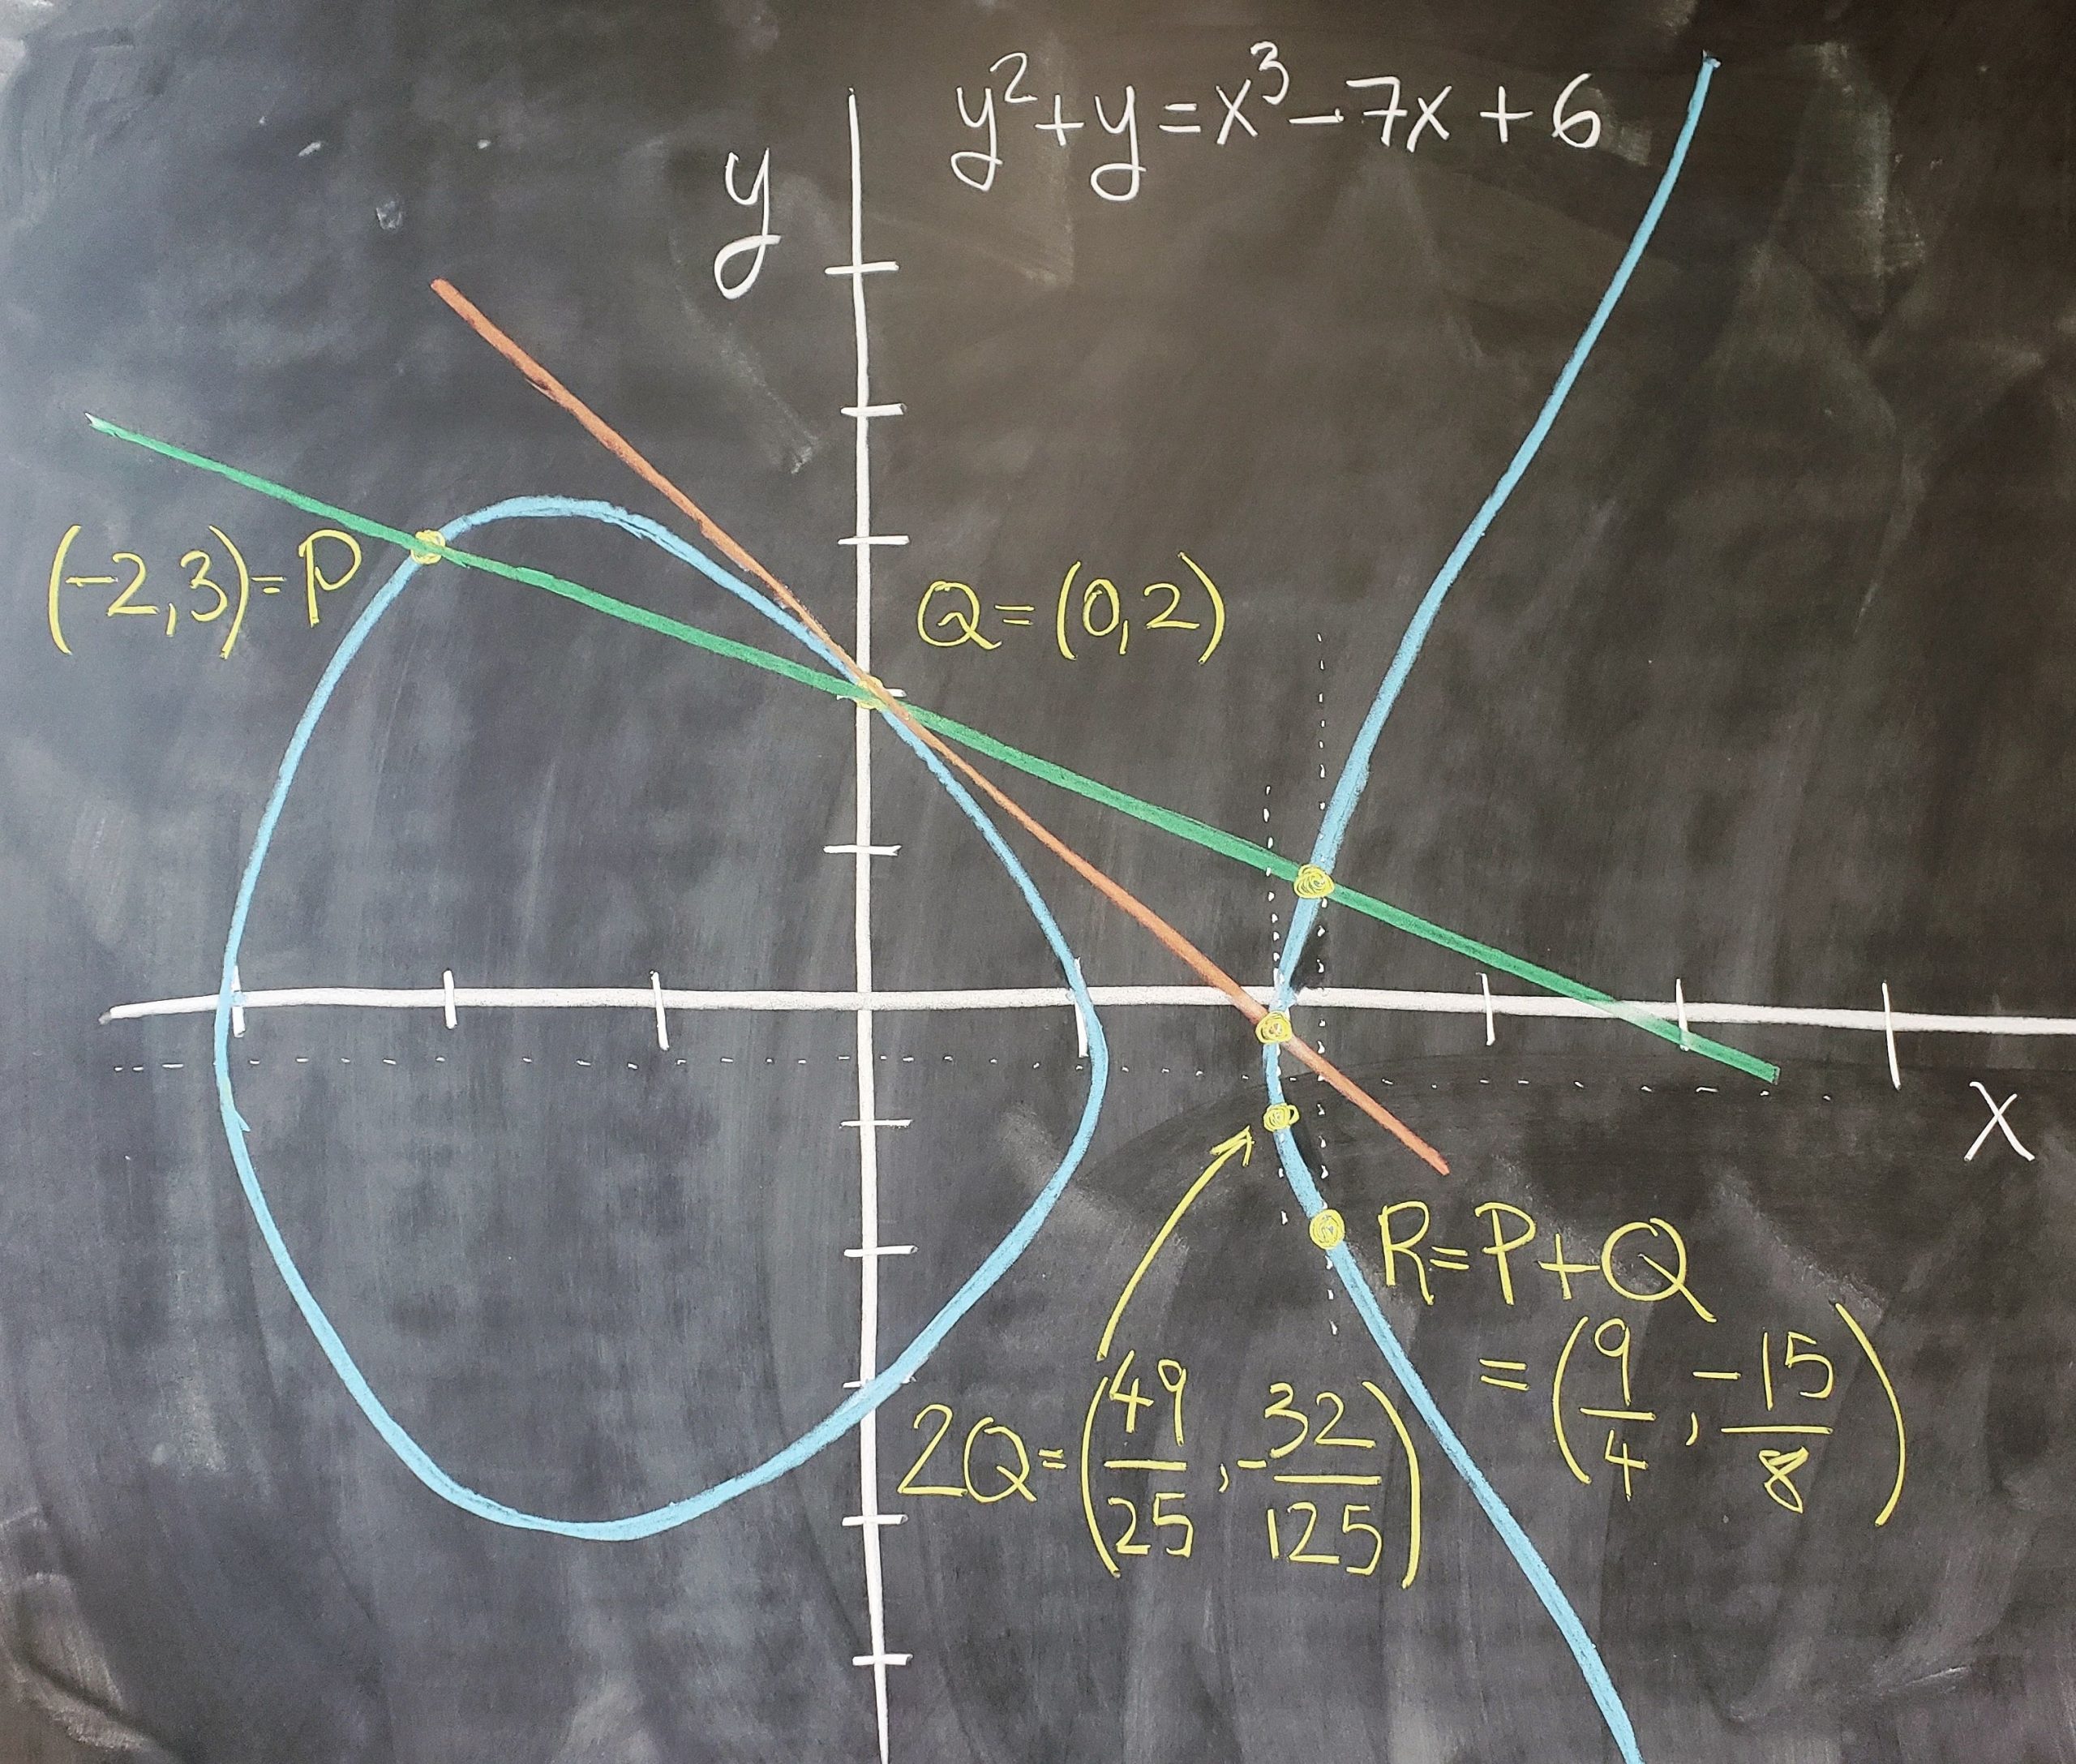 y²+y=x³−7x+6
y
(-2,3)=P
Q=(0,2)
x
R=P+Q
=(9/4, -15/8)
2Q=(49/25, -32/125)